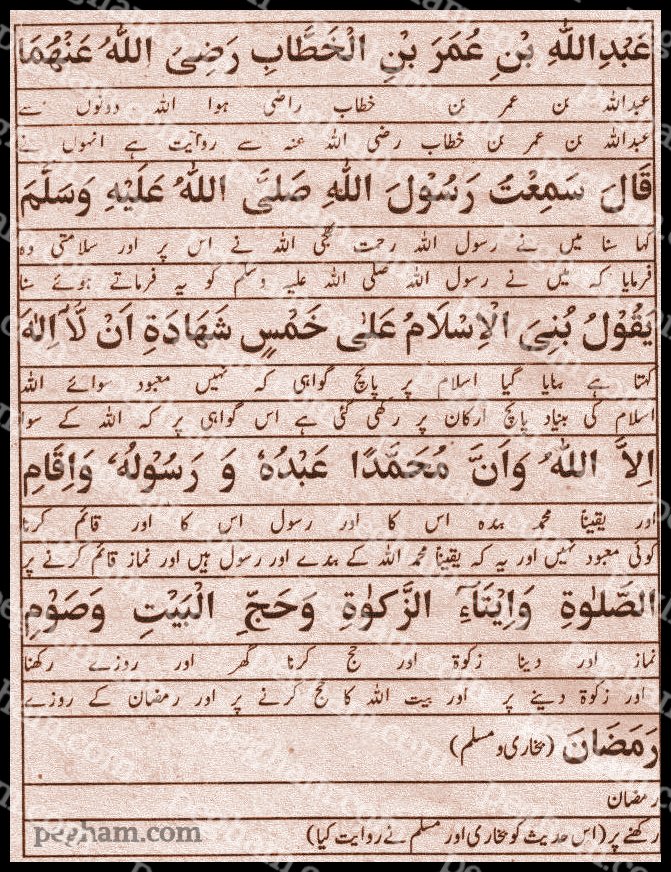 عَبْدِاللّٰهِ بْنِ عُمَرَ بْنِ الْخَطَّابِ رَضِیَ اللّٰهُ عَنْهُمَا
عبداللہ بن عمر بن خطاب راضی ہوا اللہ دونوں سے
عبداللہ بن عمر بن خطاب رضی اللہ عنہ سے روایت ہے انہوں نے
قَالَ سَمِعْتُ رَسُوْلَ اللّٰهِ صَلَّی اللّٰهُ عَلَیْهِ وَسَلَّمَ
کہا سنا میں نے رسول اللہ رحمت بھیجی اللہ نے اس پر اور سلامتی وہ
فرمایا کہ میں نے رسول اللہ صلی اللہ علیہ وسلم کو یہ فرماتے ہوئے سنا
یَقُوْلُ بُنِیَ الْاِسْلَامُ عَلٰی خَمْسٍ شَهَادَةِ اَنْ لَّاۤ اِلٰهَ
کہتا ہے بنایا گیا اسلام پر پانچ گواہی کہ نہیں معبود سوائے اللہ
اسلام کی بنیاد پانچ ارکان پر رکھی گئی ہے اس گواہی پر کہ اللہ کے سوا
اِلاَّ اللّٰهُ وَاَنَّ مُحَمَّدًا عَبْدُهٗ وَ رَسُوْلُهٗ وَاِقَامِ
اور یقیناً محمد بندہ اس کا اور رسول اس کا اور قائم کرنا
کوئی معبود نہیں اور یہ کہ یقیناً محمد اللہ کے بندے اور رسول ہیں اور نماز قائم کرنے پر
الصَّلٰوةِ وَاِیْتَآءِ الزَّکٰوةِ وَحَجِّ الْبَیْتِ وَصَوْمِ
نماز اور دینا زکوۃ اور حج کرنا گھر اور روزے رکھنا
اور زکوۃ دینے پر اور بیت اللہ کا حج کرنے پر اور رمضان کے روزے
رَمَضَانَ (بخاری و مسلم)
رمضان
رکھنے پر (اس حدیث کو بخاری اور مسلم نے روایت کیا)
pegham.com